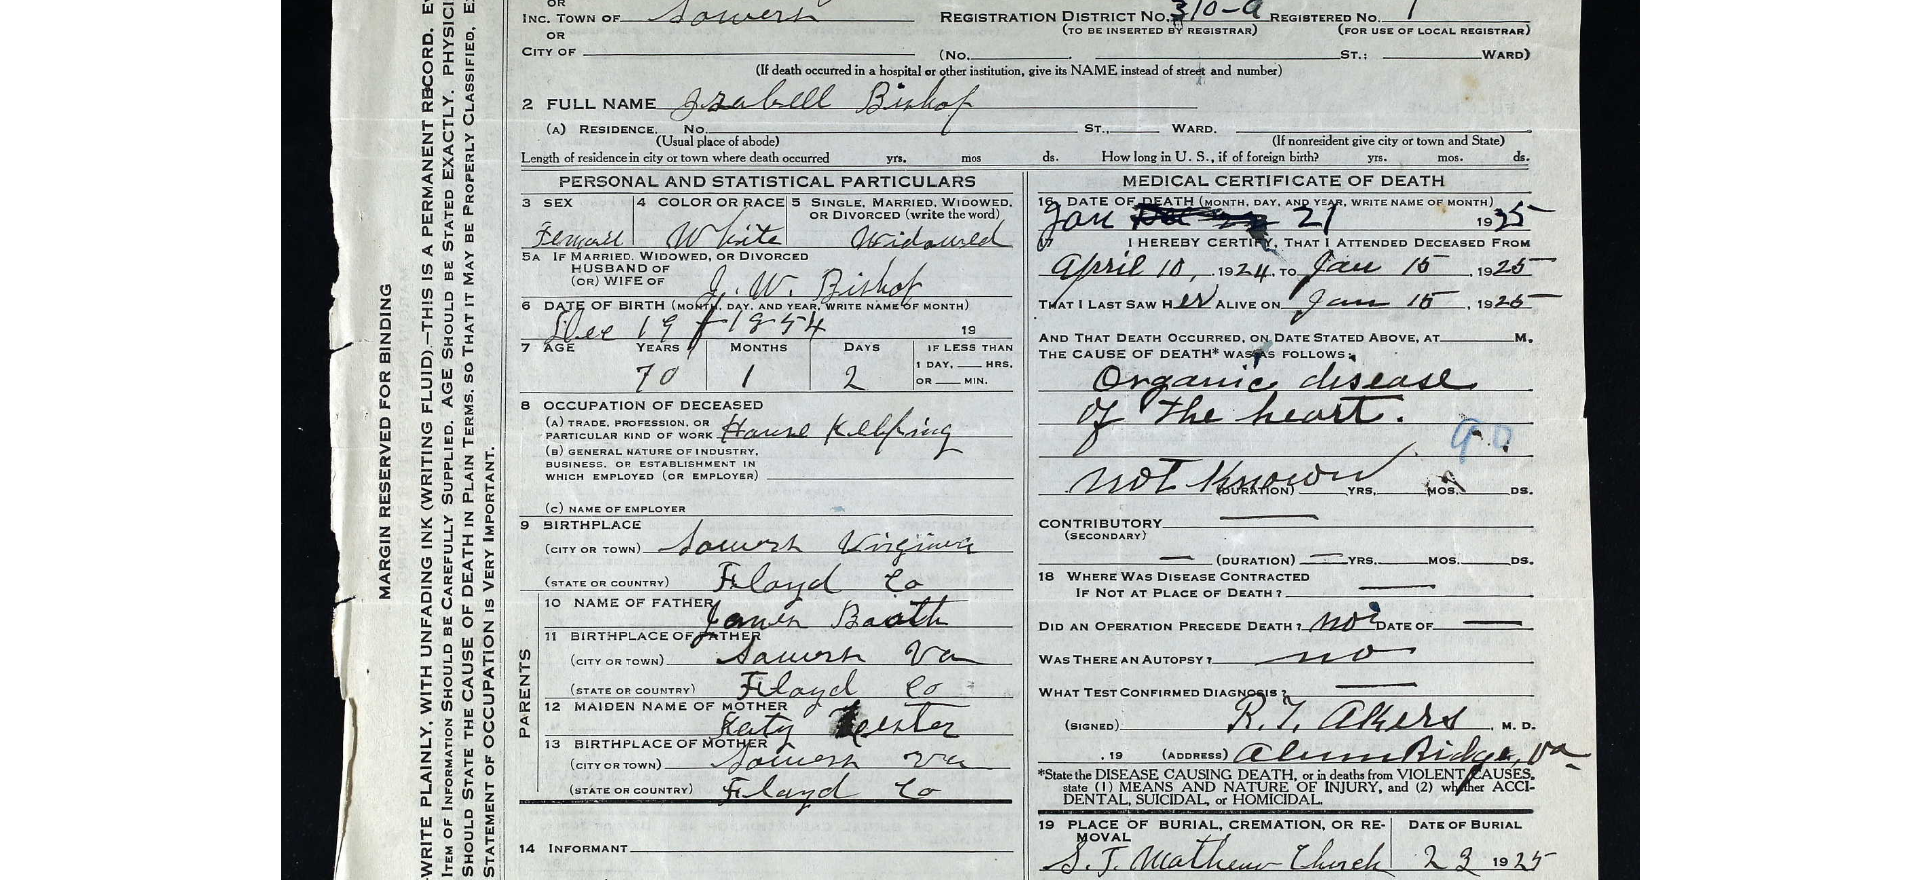 OR
INC. TOWN OF Sowers REGISTRATION DISTRICT No. 310-a REGISTERED No. 1
OR (TO BE INSERTED BY REGISTRAR) (FOR USE OF LOCAL REGISTRAR)
CITY OF (No. ST.; WARD)
(If death occurred in a hospital or other institution, give its NAME instead of street and number)
2 FULL NAME Izabell Bishop
(A) RESIDENCE. No. ST., WARD.
(Usual place of abode) (If nonresident give city or town and State)
Length of residence in city or town where death occurred yrs. mos ds. How long in U. S., if of foreign birth? yrs. mos. ds.
PERSONAL AND STATISTICAL PARTICULARS
3 SEX 4 COLOR OR RACE 5 SINGLE, MARRIED, WIDOWED, OR DIVORCED (write the word)
Femail White Widowed
5A IF MARRIED, WIDOWED, OR DIVORCED
HUSBAND OF
(OR) WIFE OF J. W. Bishop
6 DATE OF BIRTH (MONTH, DAY, AND YEAR, WRITE NAME OF MONTH)
Dec 19 1854 19
7 AGE YEARS MONTHS DAYS IF LESS THAN
1 DAY, HRS.
70 1 2 OR MIN.
8 OCCUPATION OF DECEASED
(A) TRADE, PROFESSION, OR
PARTICULAR KIND OF WORK House Keepring
(B) GENERAL NATURE OF INDUSTRY,
BUSINESS, OR ESTABLISHMENT IN
WHICH EMPLOYED (OR EMPLOYER)
(C) NAME OF EMPLOYER
9 BIRTHPLACE
(CITY OR TOWN) Sowers Virginia
(STATE OR COUNTRY) Floyd Co
PARENTS
10 NAME OF FATHER James Booth
11 BIRTHPLACE OF FATHER
(CITY OR TOWN) Sowers Va
(STATE OR COUNTRY) Floyd Co
12 MAIDEN NAME OF MOTHER Katy
13 BIRTHPLACE OF MOTHER
(CITY OR TOWN) Sowers Va
(STATE OR COUNTRY) Floyd Co
14 INFORMANT
MEDICAL CERTIFICATE OF DEATH
16 DATE OF DEATH (MONTH, DAY, AND YEAR, WRITE NAME OF MONTH)
Jan 21 1925
17 I HEREBY CERTIFY, THAT I ATTENDED DECEASED FROM
April 10, 1924, TO Jan 15, 1925
THAT I LAST SAW HER ALIVE ON Jan 15, 1925
AND THAT DEATH OCCURRED, ON DATE STATED ABOVE, AT M.
THE CAUSE OF DEATH* WAS AS FOLLOWS:
Organic disease
of the heart.
90
not known (DURATION) YRS. MOS. DS.
CONTRIBUTORY —
(SECONDARY)
— (DURATION) — YRS. MOS. DS.
18 WHERE WAS DISEASE CONTRACTED
IF NOT AT PLACE OF DEATH? —
DID AN OPERATION PRECEDE DEATH? no DATE OF —
WAS THERE AN AUTOPSY? no
WHAT TEST CONFIRMED DIAGNOSIS? —
(SIGNED) R. T. Akers, M. D.
, 19 (ADDRESS) Alum Ridge, Va
*State the DISEASE CAUSING DEATH, or in deaths from VIOLENT CAUSES,
state (1) MEANS AND NATURE OF INJURY, and (2) whether ACCI-
DENTAL, SUICIDAL, or HOMICIDAL.
19 PLACE OF BURIAL, CREMATION, OR RE- DATE OF BURIAL
MOVAL
S.T. Mathews Church 23 1925
MARGIN RESERVED FOR BINDING
WRITE PLAINLY, WITH UNFADING INK (WRITING FLUID).—THIS IS A PERMANENT RECORD.
ITEM OF INFORMATION SHOULD BE CAREFULLY SUPPLIED. AGE SHOULD BE STATED EXACTLY.
SHOULD STATE THE CAUSE OF DEATH IN PLAIN TERMS, SO THAT IT MAY BE PROPERLY CLASSIFIED,
STATEMENT OF OCCUPATION IS VERY IMPORTANT.